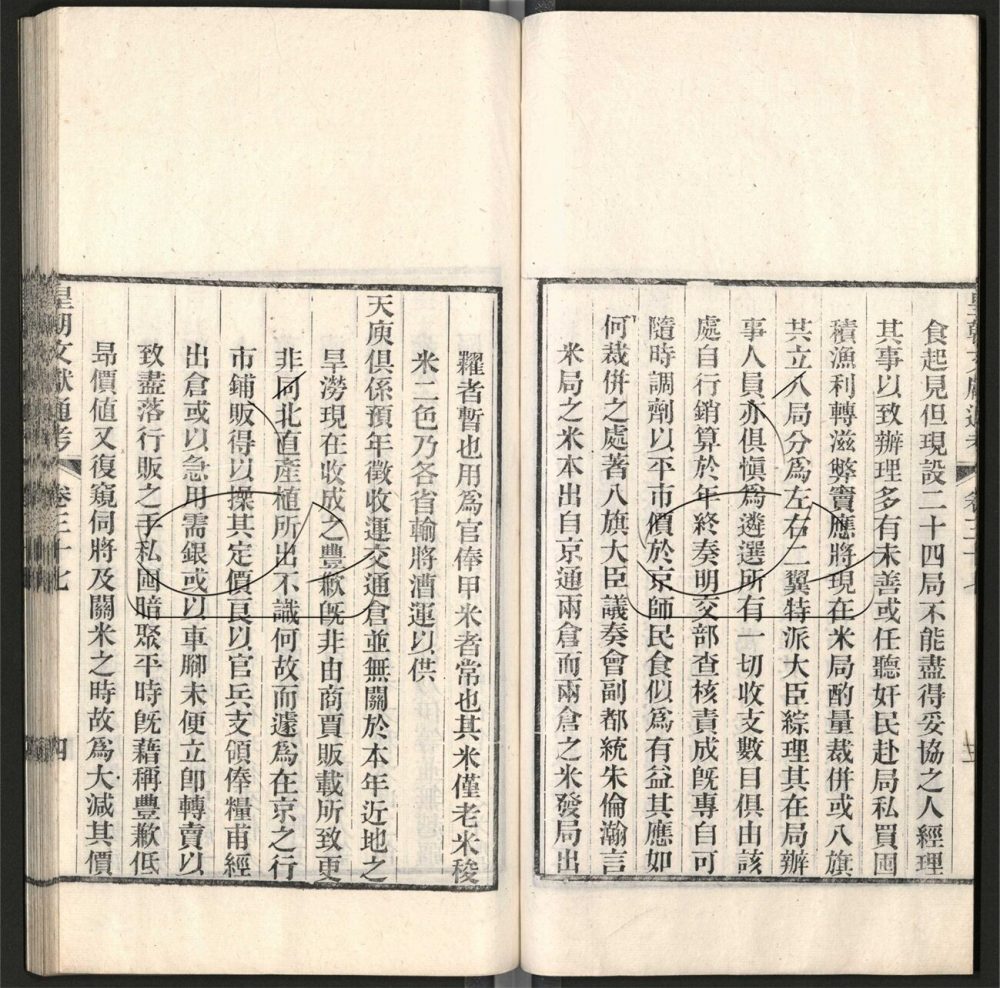 皇朝文獻通考 卷三十七 三
食起見但現設二十四局不能盡得妥協之人經理
其事以致辦理多有未善或任聽奸民赴局私買囤
積漁利轉滋弊竇應將現在米局酌量裁併或八旗
共立八局分為左右二翼特派大臣綜理其在局辦
事人員亦俱慎為遴選所有一切收支數目俱由該
處自行銷算於年終奏明交部查核責成旣專自可
隨時調劑以平市價於京師民食似為有益其應如
何裁併之處著八旗大臣議奏會副都統朱倫瀚言
米局之米本出自京通兩倉而兩倉之米發局出
糶者暫也用為官俸甲米者常也其米僅老米稜
米二色乃各省輸將漕運以供
天庾俱係預年徵收運交通倉並無關於本年近地之
旱澇現在收成之豐歉旣非由商賈販載所致更
非同北直產植所出不識何故而遽為在京之行
市鋪販得以操其定價良以官兵支領俸糧甫經
出倉或以急用需銀或以車腳未便立卽轉賣以
致盡落行販之手私囤暗聚平時旣藉稱豐歉低
昂價值又復窺伺將及關米之時故為大減其價
皇朝文獻通考 卷三十七 四